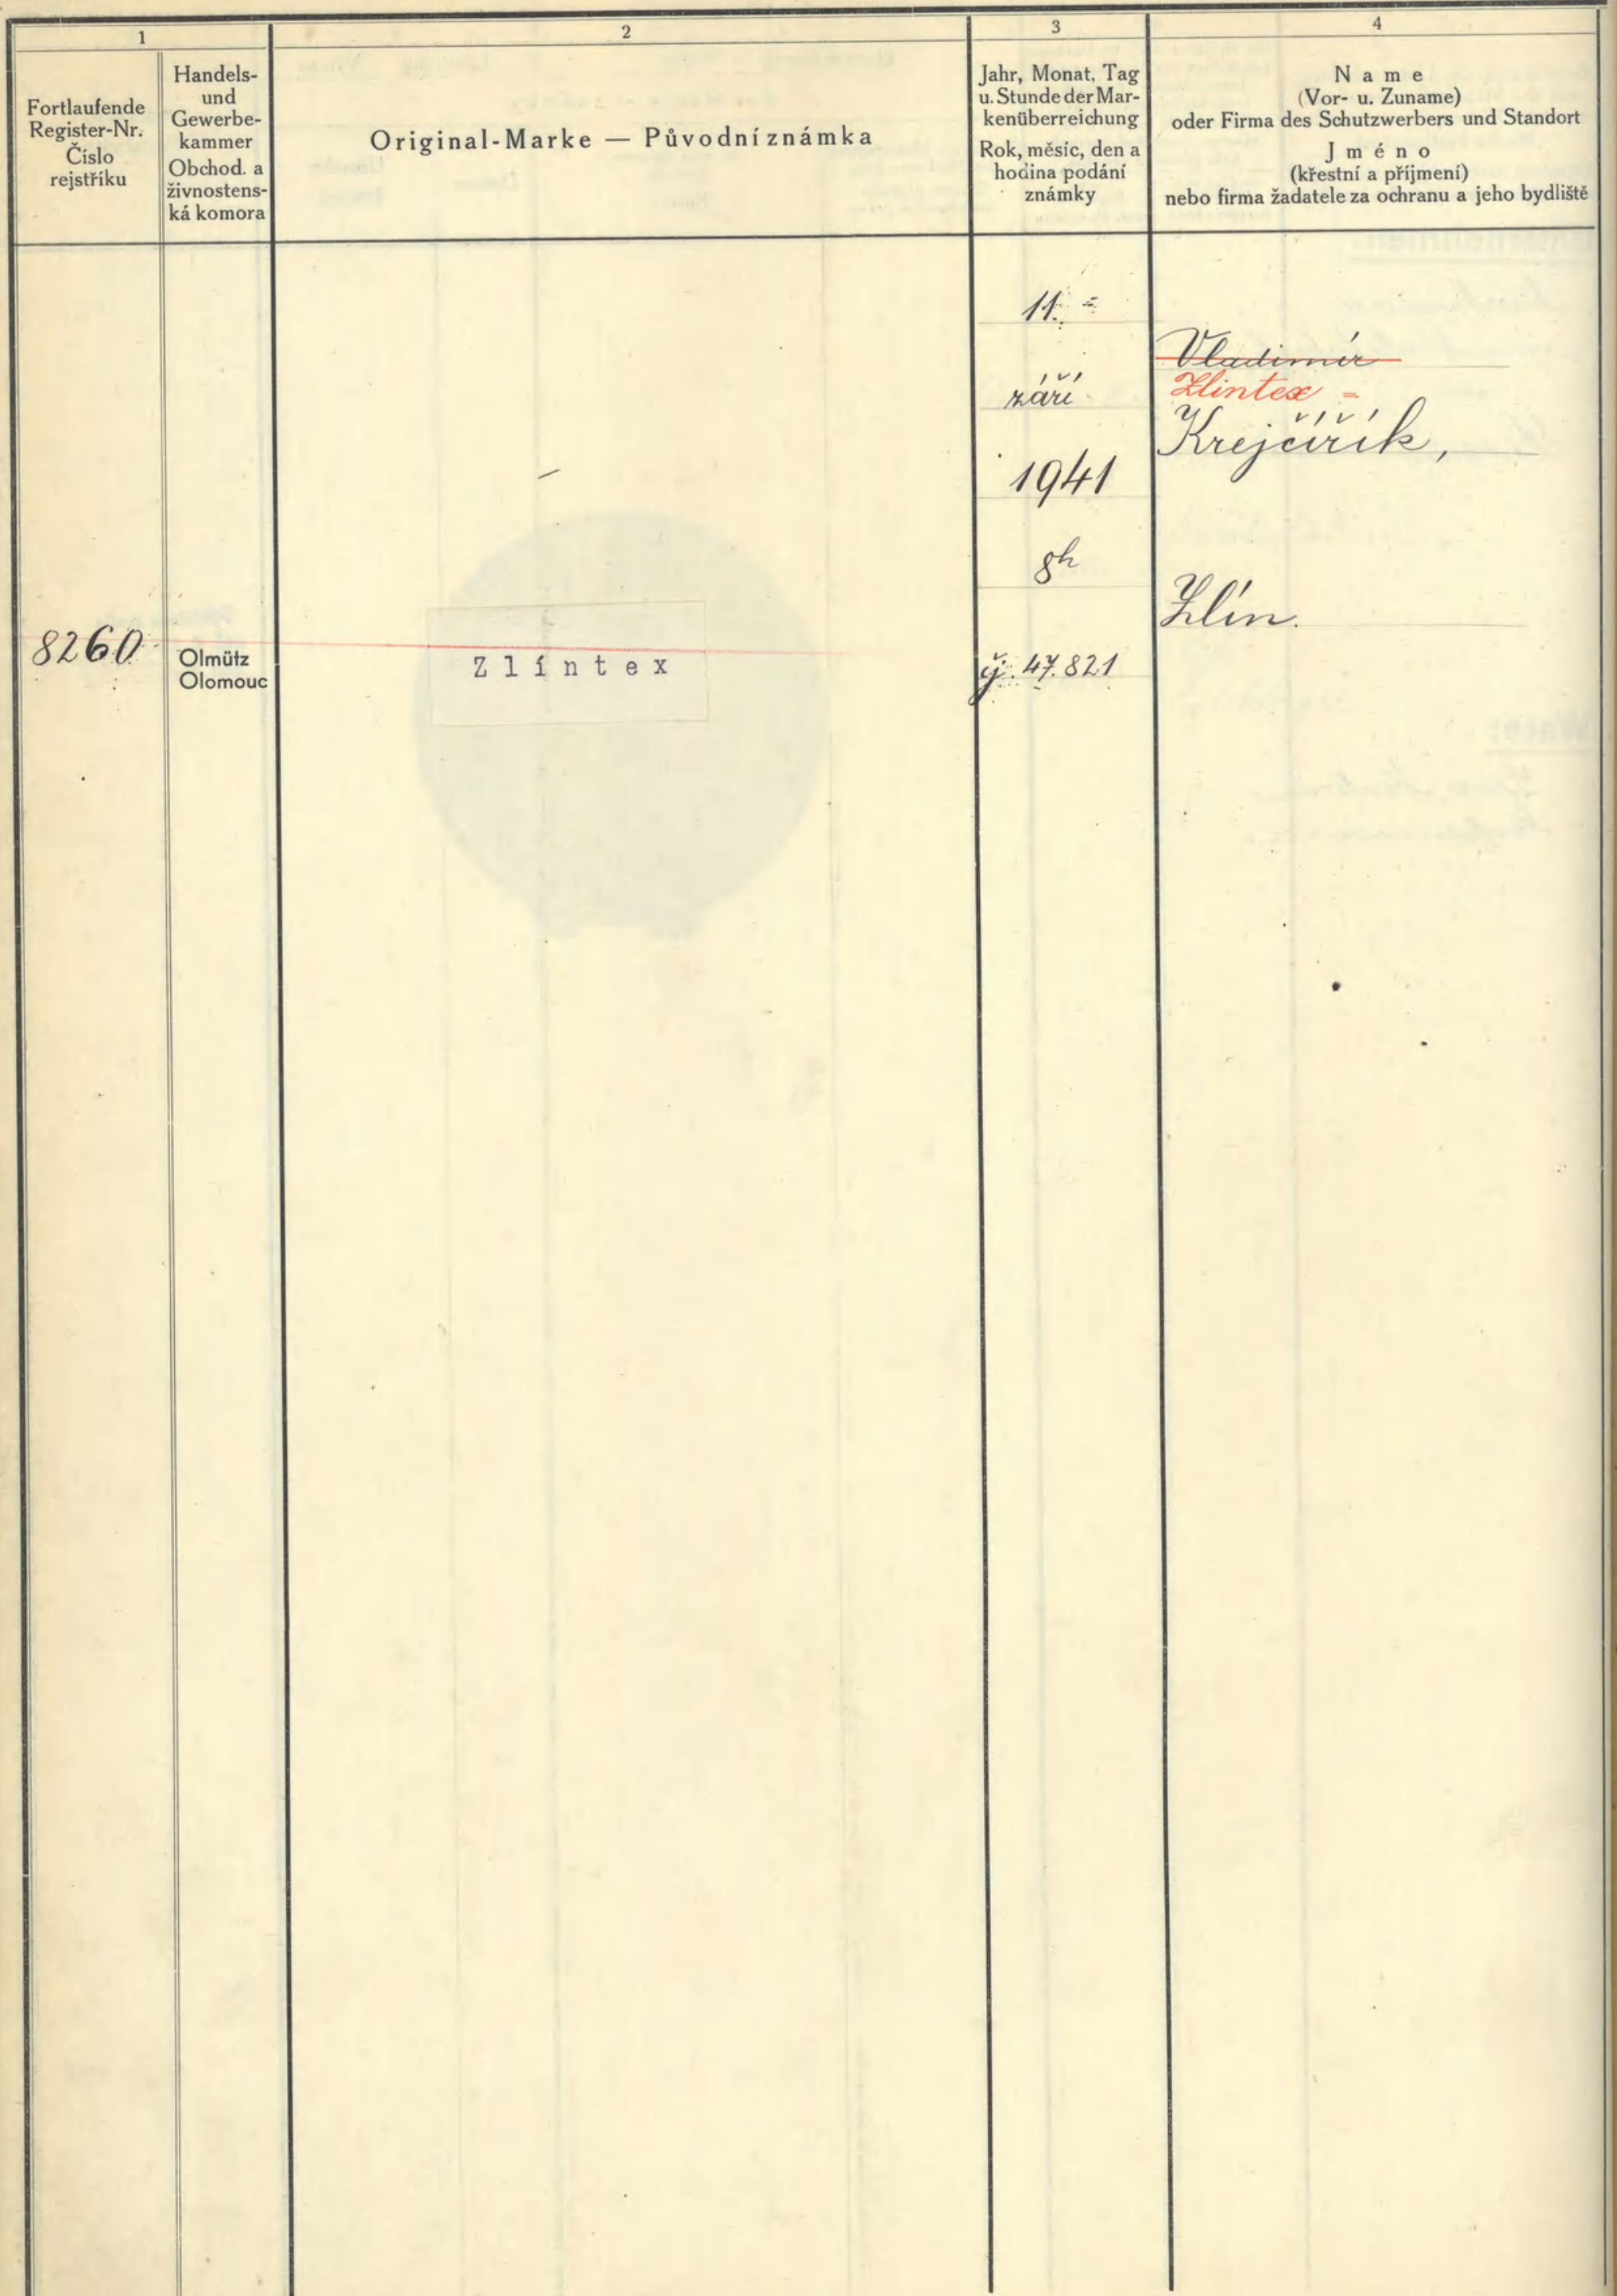 1
Fortlaufende
Register-Nr.
Číslo
rejstříku
Handels-
und
Gewerbe-
kammer
Obchod. a
živnostens-
ká komora
2
Original-Marke — Původní známka
3
Jahr, Monat, Tag
u. Stunde der Mar-
kenüberreichung
Rok, měsíc, den a
hodina podání
známky
4
Name
(Vor- u. Zuname)
oder Firma des Schutzwerbers und Standort
Jméno
(křestní a příjmení)
nebo firma žadatele za ochranu a jeho bydliště
8260
Olmütz
Olomouc
Zlíntex
11.
září
1941
8h
čj. 47.821
Vladimír
Zlintex =
Krejčiřík,
Zlín.